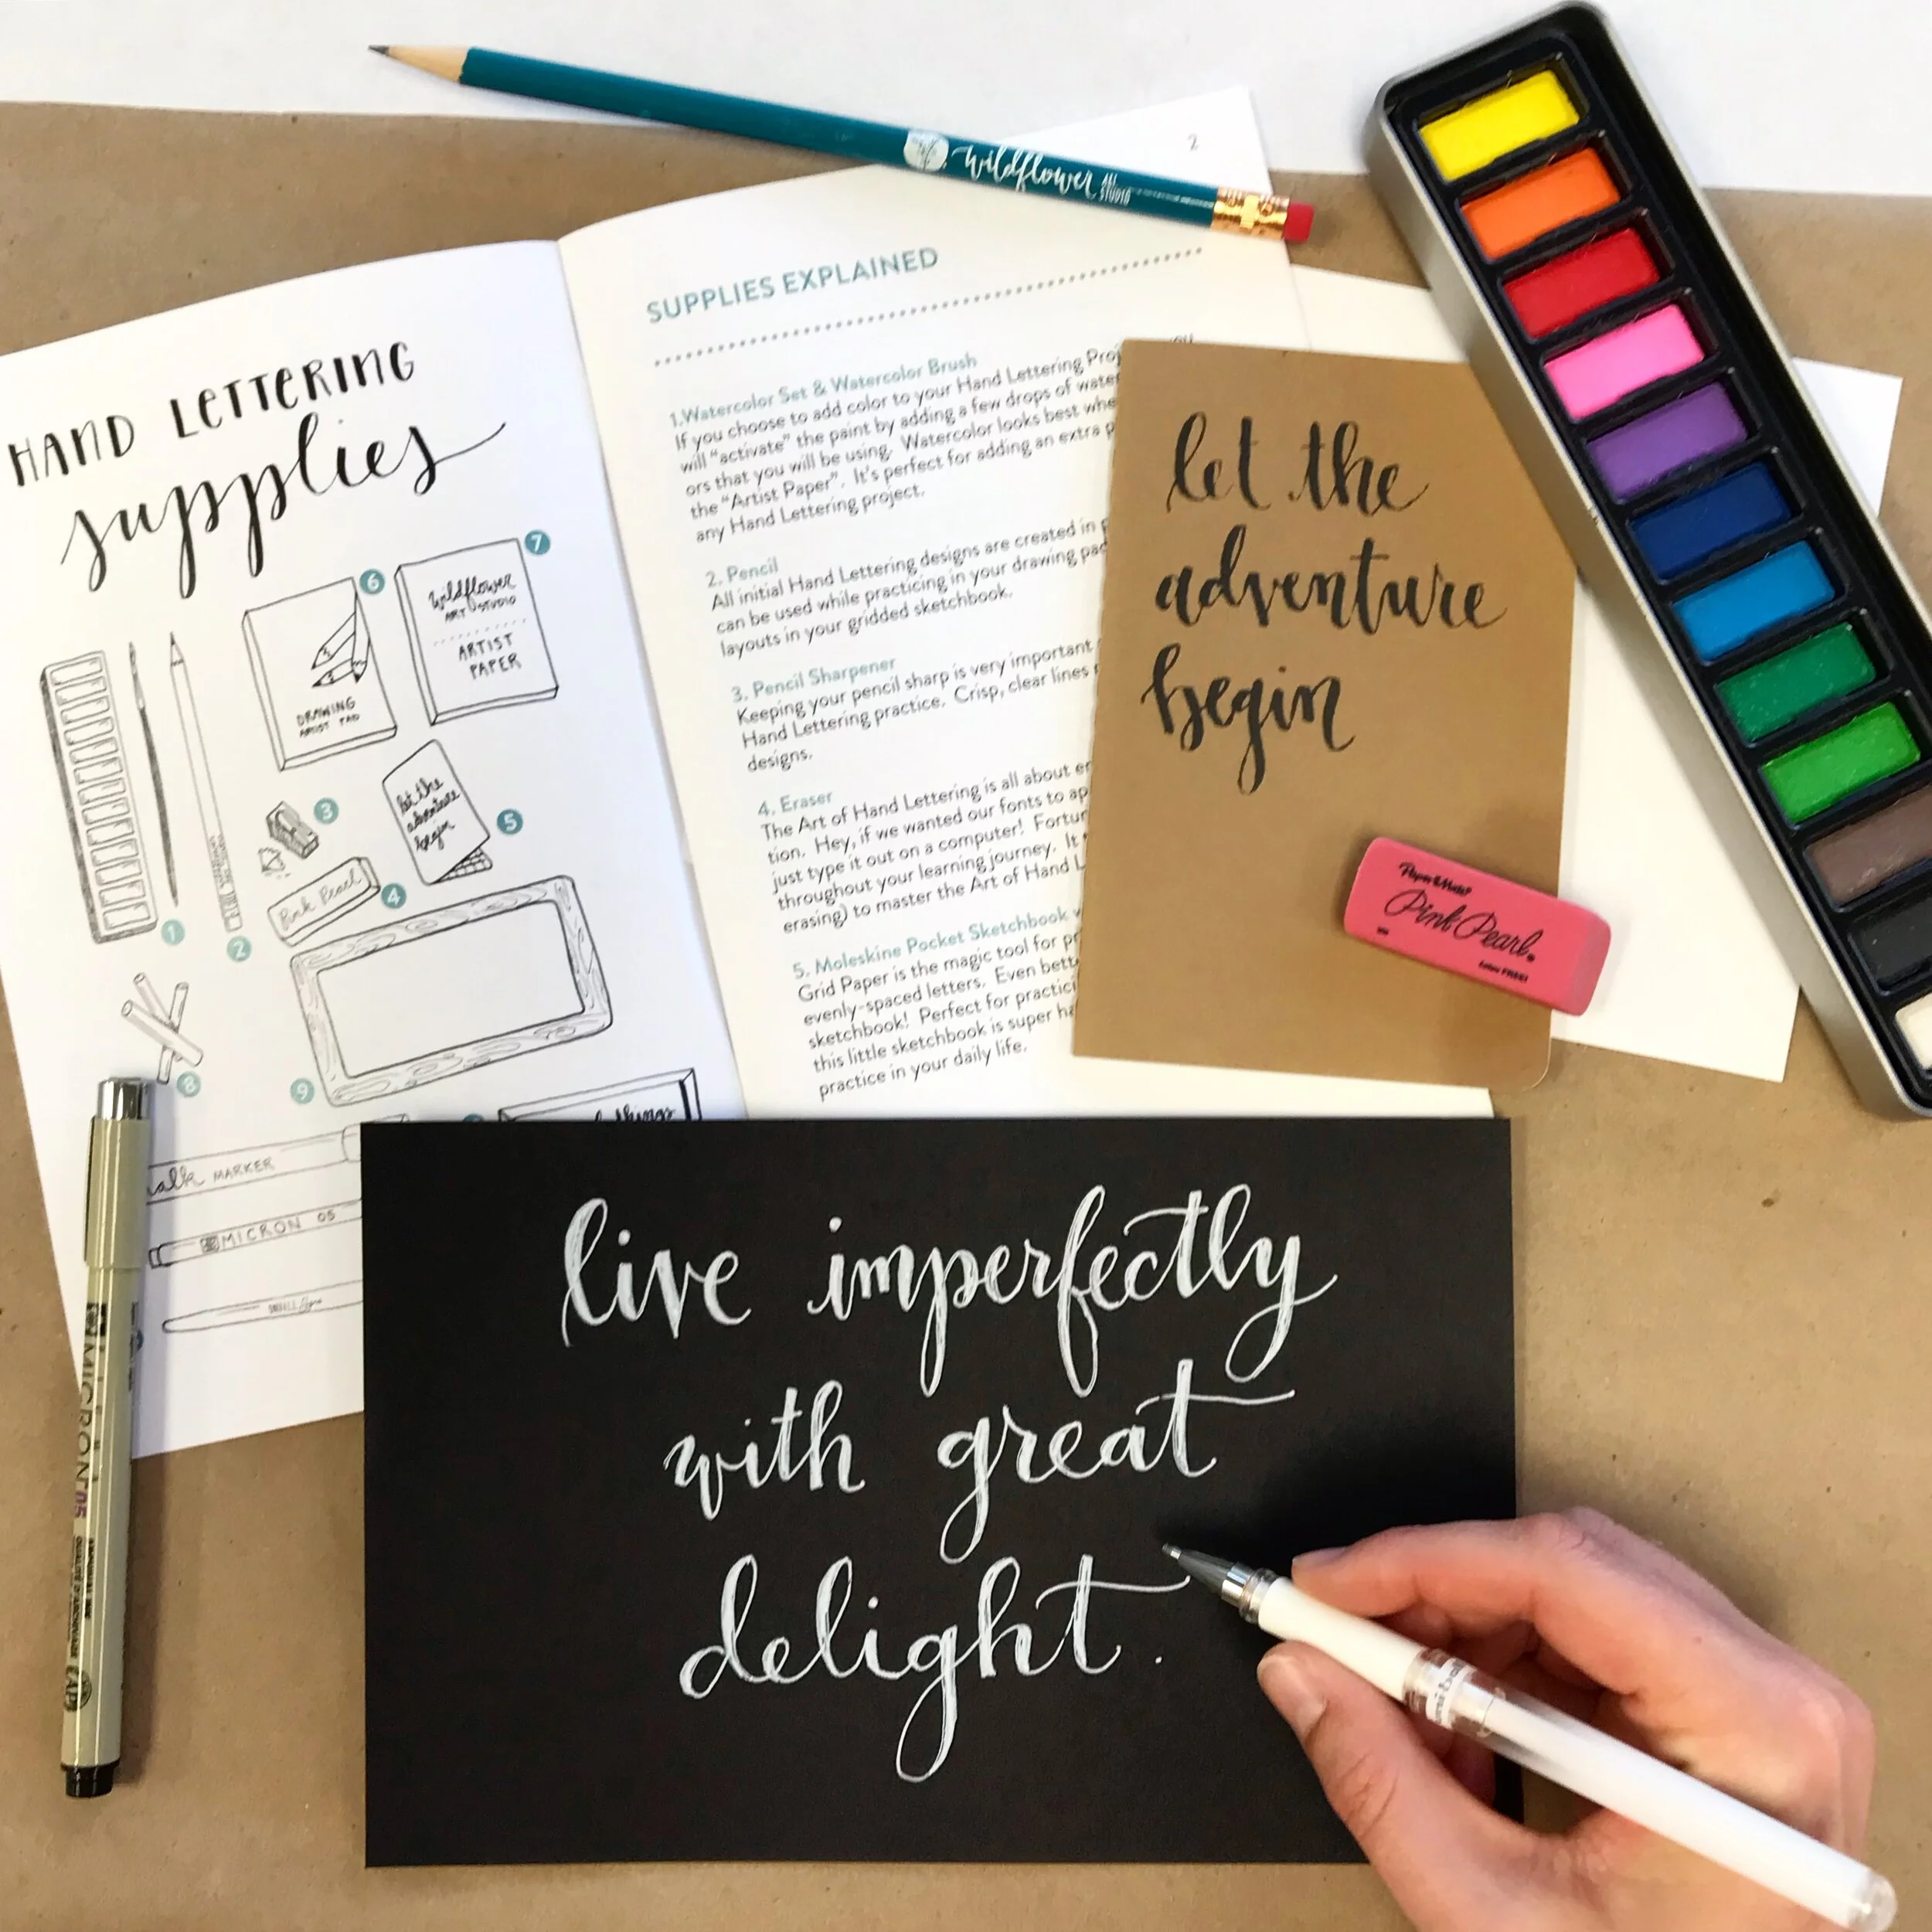 wildflower ART STUDIO
2
HAND LETTERING
supplies
7
6
wildflower
ART STUDIO
ARTIST
PAPER
DRAWING
ARTIST PAD
3
let the
adventure
begin
5
Pink Pearl
4
1
2
8
9
things
alk MARKER
MICRON 05
SUPPLIES EXPLAINED
1.Watercolor Set & Watercolor Brush
If you choose to add color to your Hand Lettering Proj you
will "activate" the paint by adding a few drops of water
ors that you will be using. Watercolor looks best whe
the "Artist Paper". It's perfect for adding an extra p
any Hand Lettering project.
2. Pencil
All initial Hand Lettering designs are created in p
can be used while practicing in your drawing pad
layouts in your gridded sketchbook.
3. Pencil Sharpener
Keeping your pencil sharp is very important
Hand Lettering practice. Crisp, clear lines
designs.
4. Eraser
The Art of Hand Lettering is all about er
tion. Hey, if we wanted our fonts to ap
just type it out on a computer! Fortun
throughout your learning journey. It
erasing) to master the Art of Hand L
5. Moleskine Pocket Sketchbook w
Grid Paper is the magic tool for pr
evenly-spaced letters. Even bett
sketchbook! Perfect for practici
this little sketchbook is super ha
practice in your daily life.
let the
adventure
begin
Paper Mate
Pink Pearl
Latex FREE!
MICRON 05
live imperfectly
with great
delight.